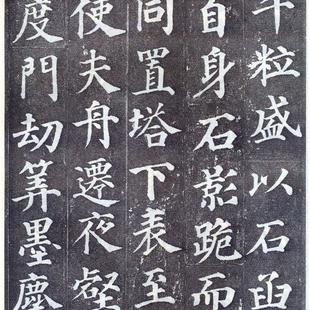 千粒盛以石函
自身石影跪而
同置塔下表至
使夫舟遷夜壑
度門劫筭墨塵